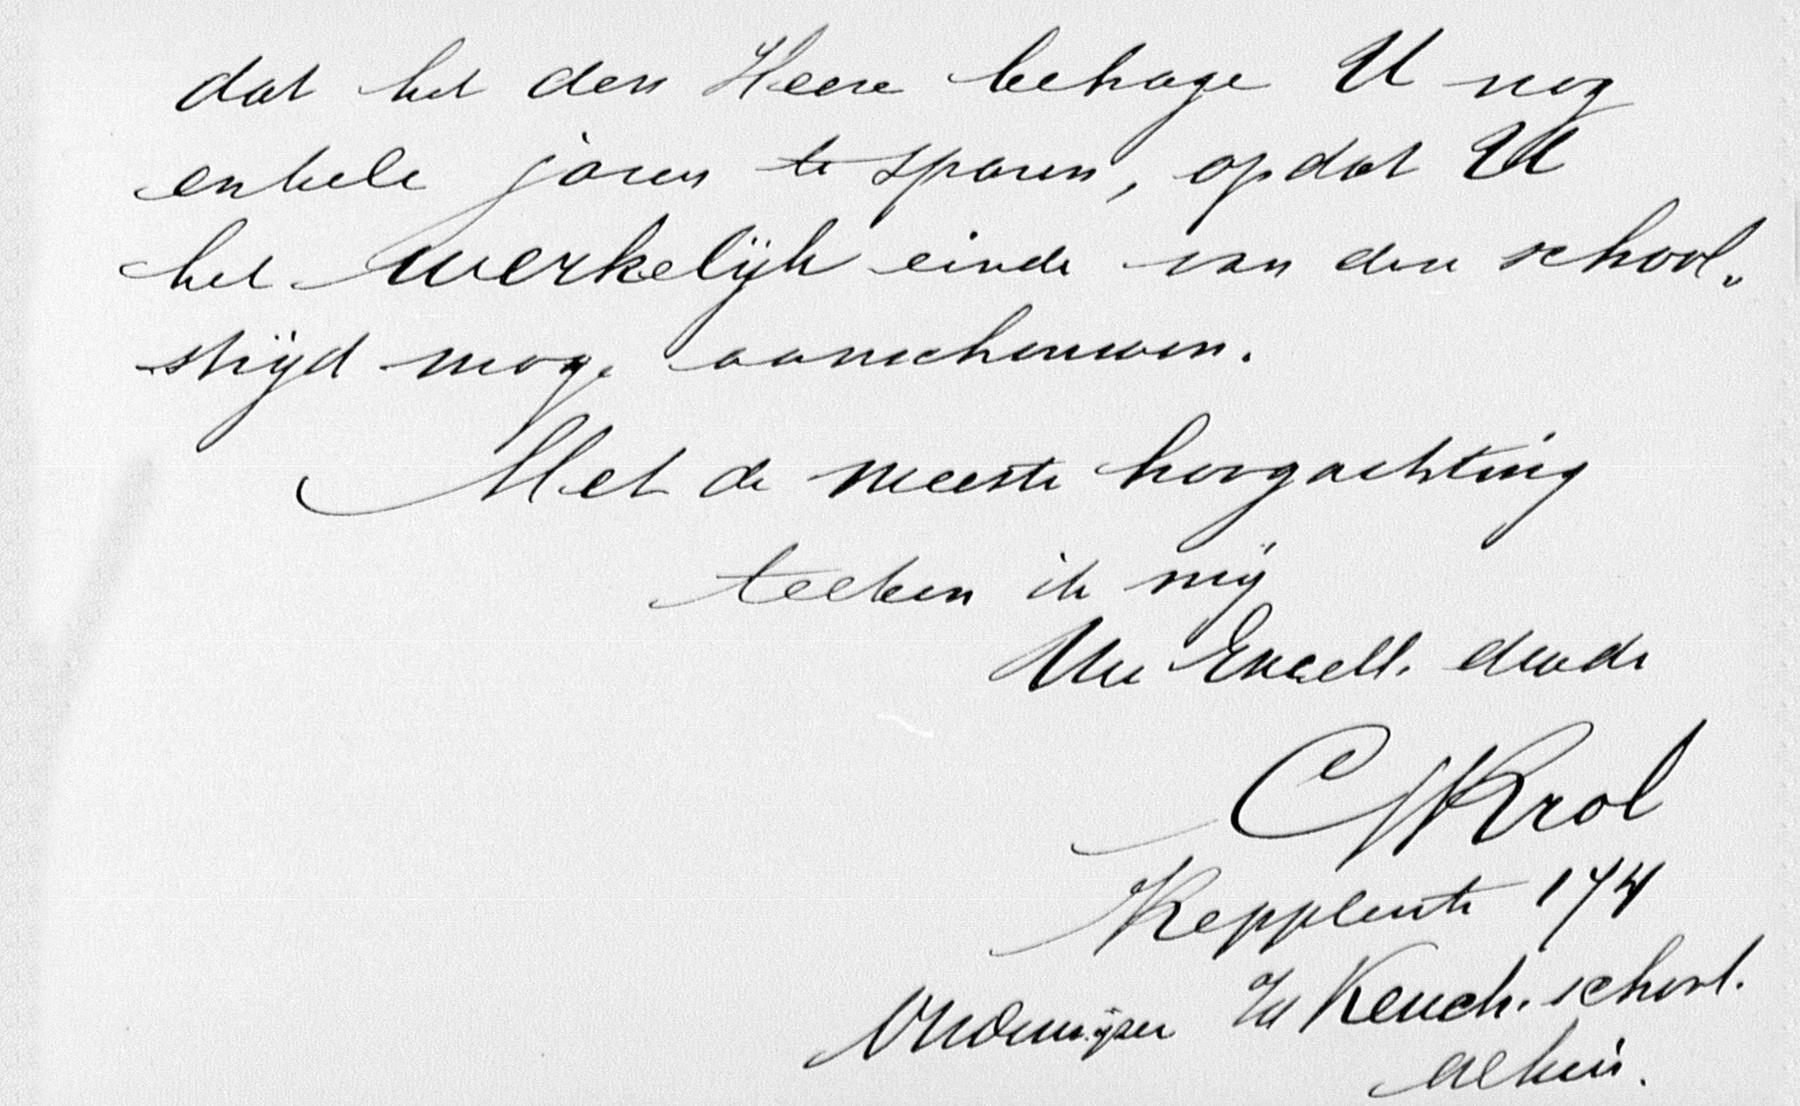 dat het den Heere behage U nog
enkele jaren te sparen, opdat U
het werkelijk einde van den school„
strijd moge aanschouwen.
Met de meeste hoogachting
teeken ik mij
Uw Excell. dwdr
C Krol
174
Onderwijzer Keuch. school.
alhier.